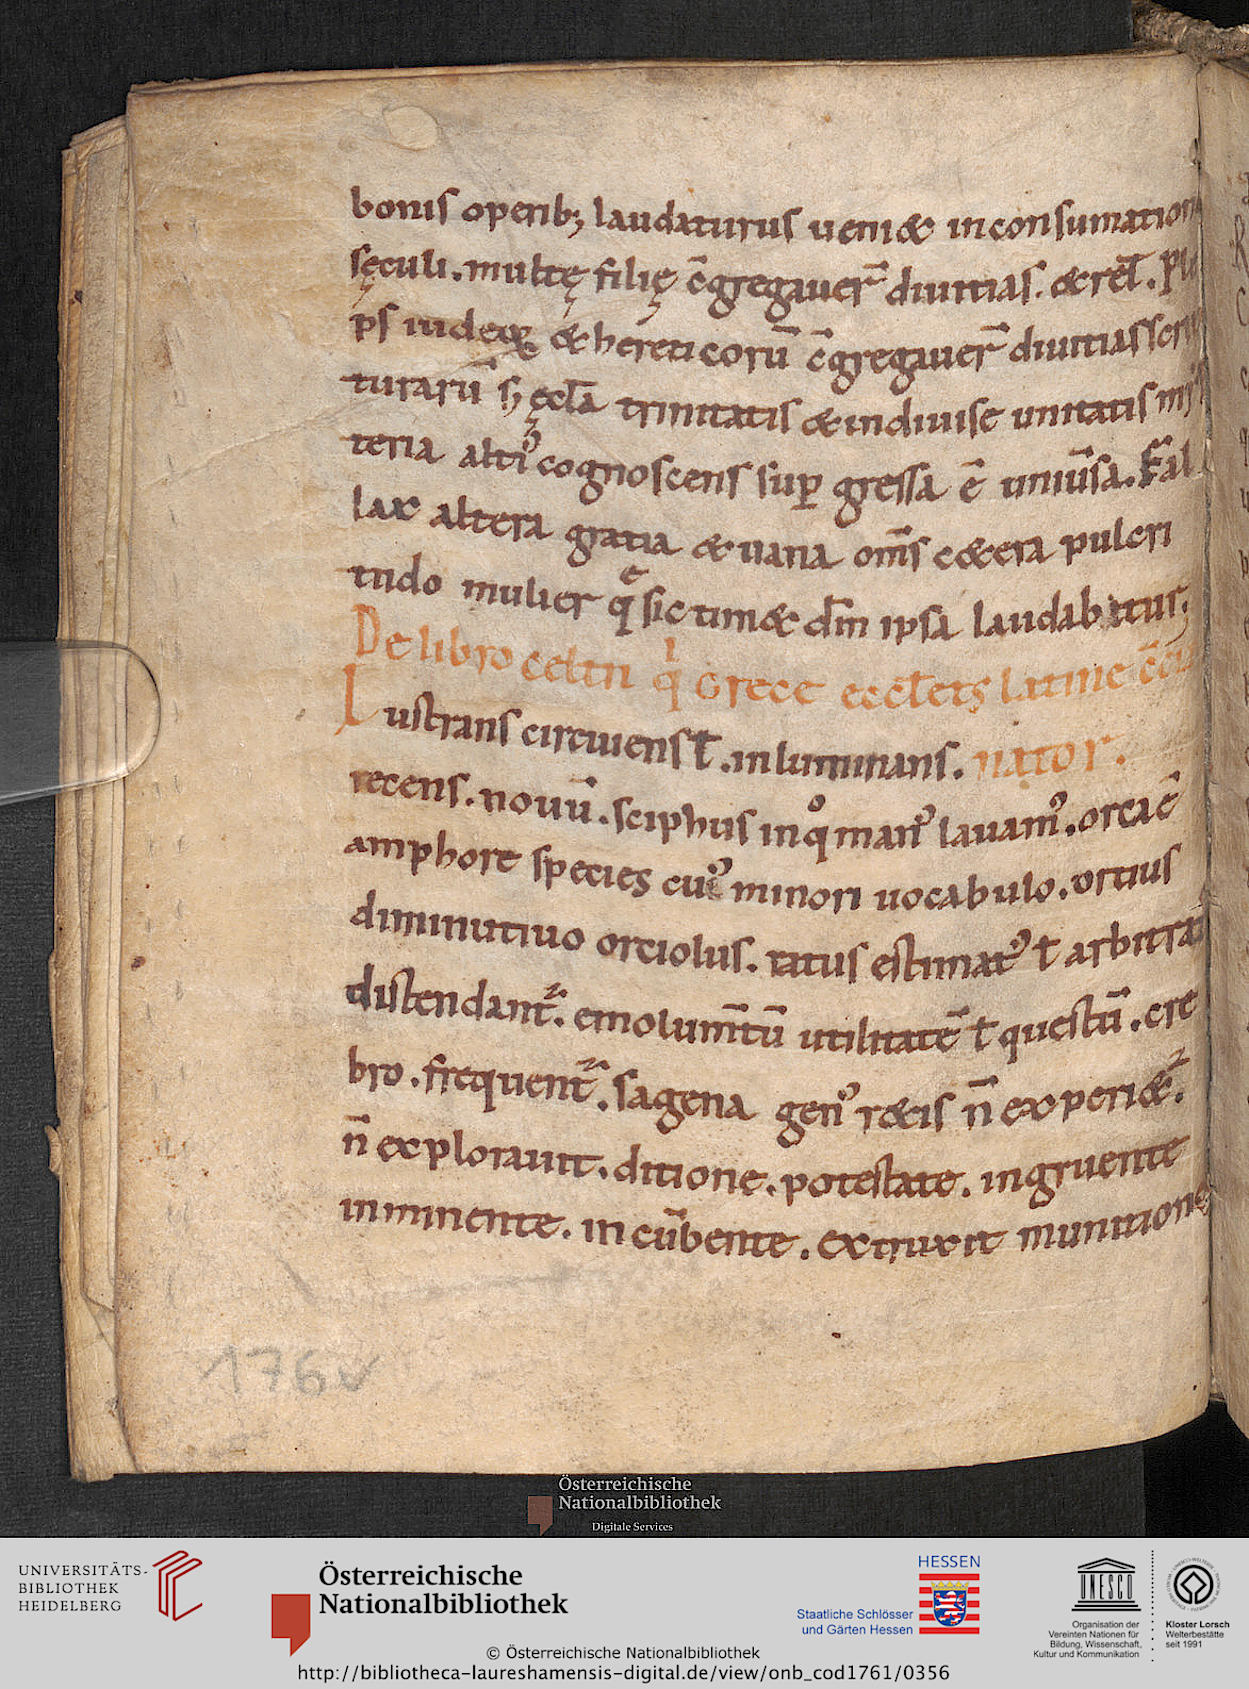 bonis operib; laudaturus ueni& inconsumation
sęculi. multę filię c̄gregauer̄ diuitias. & rel̄. Plu
ps iudeoꝝ & hereticorū c̄gregauer̄ diuitias scrip
turarū sꝫ ęccl̄a trinitatis & indiuise unitatis mis
teria alti᾽ cognoscens suꝑ gressa ē uniūsa. Fal
lax altera gratia & uana om̄s c&era pulcri
tudo mulier q̄ sic tim& dm̄ ipsa laudabitur;
De libro celtn qⁱ Grece eccl̄ets latine c̄cio
Lustrans circuiens ł. inluminans. nator.
recens. nouū. sciphus inqͦ man᾽ lauam᾽. orca ē
amphore species cui᾽ minori uocabulo. ortius
diminutiuo orciolus. ratus estimat᾽ ł arbitrat
distendant᷑. emolum̄tū utilitatē ł questū. cre
bro. frequent᷑. sagena gen᾽ r&is n̄ experi&᷑.
n̄ explorauit. ditione. potestate. ingruente
imminente. incūbente. extruxit munitione
176v
Österreichische
Nationalbibliothek
Digitale Services
UNIVERSITÄTS-
BIBLIOTHEK
HEIDELBERG
Österreichische
Nationalbibliothek
HESSEN
Staatliche Schlösser
und Gärten Hessen
UNESCO
Organisation der
Vereinten Nationen für
Bildung, Wissenschaft,
Kultur und Kommunikation
Kloster Lorsch
Welterbestätte
seit 1991
© Österreichische Nationalbibliothek
http://bibliotheca-laureshamensis-digital.de/view/onb_cod1761/0356